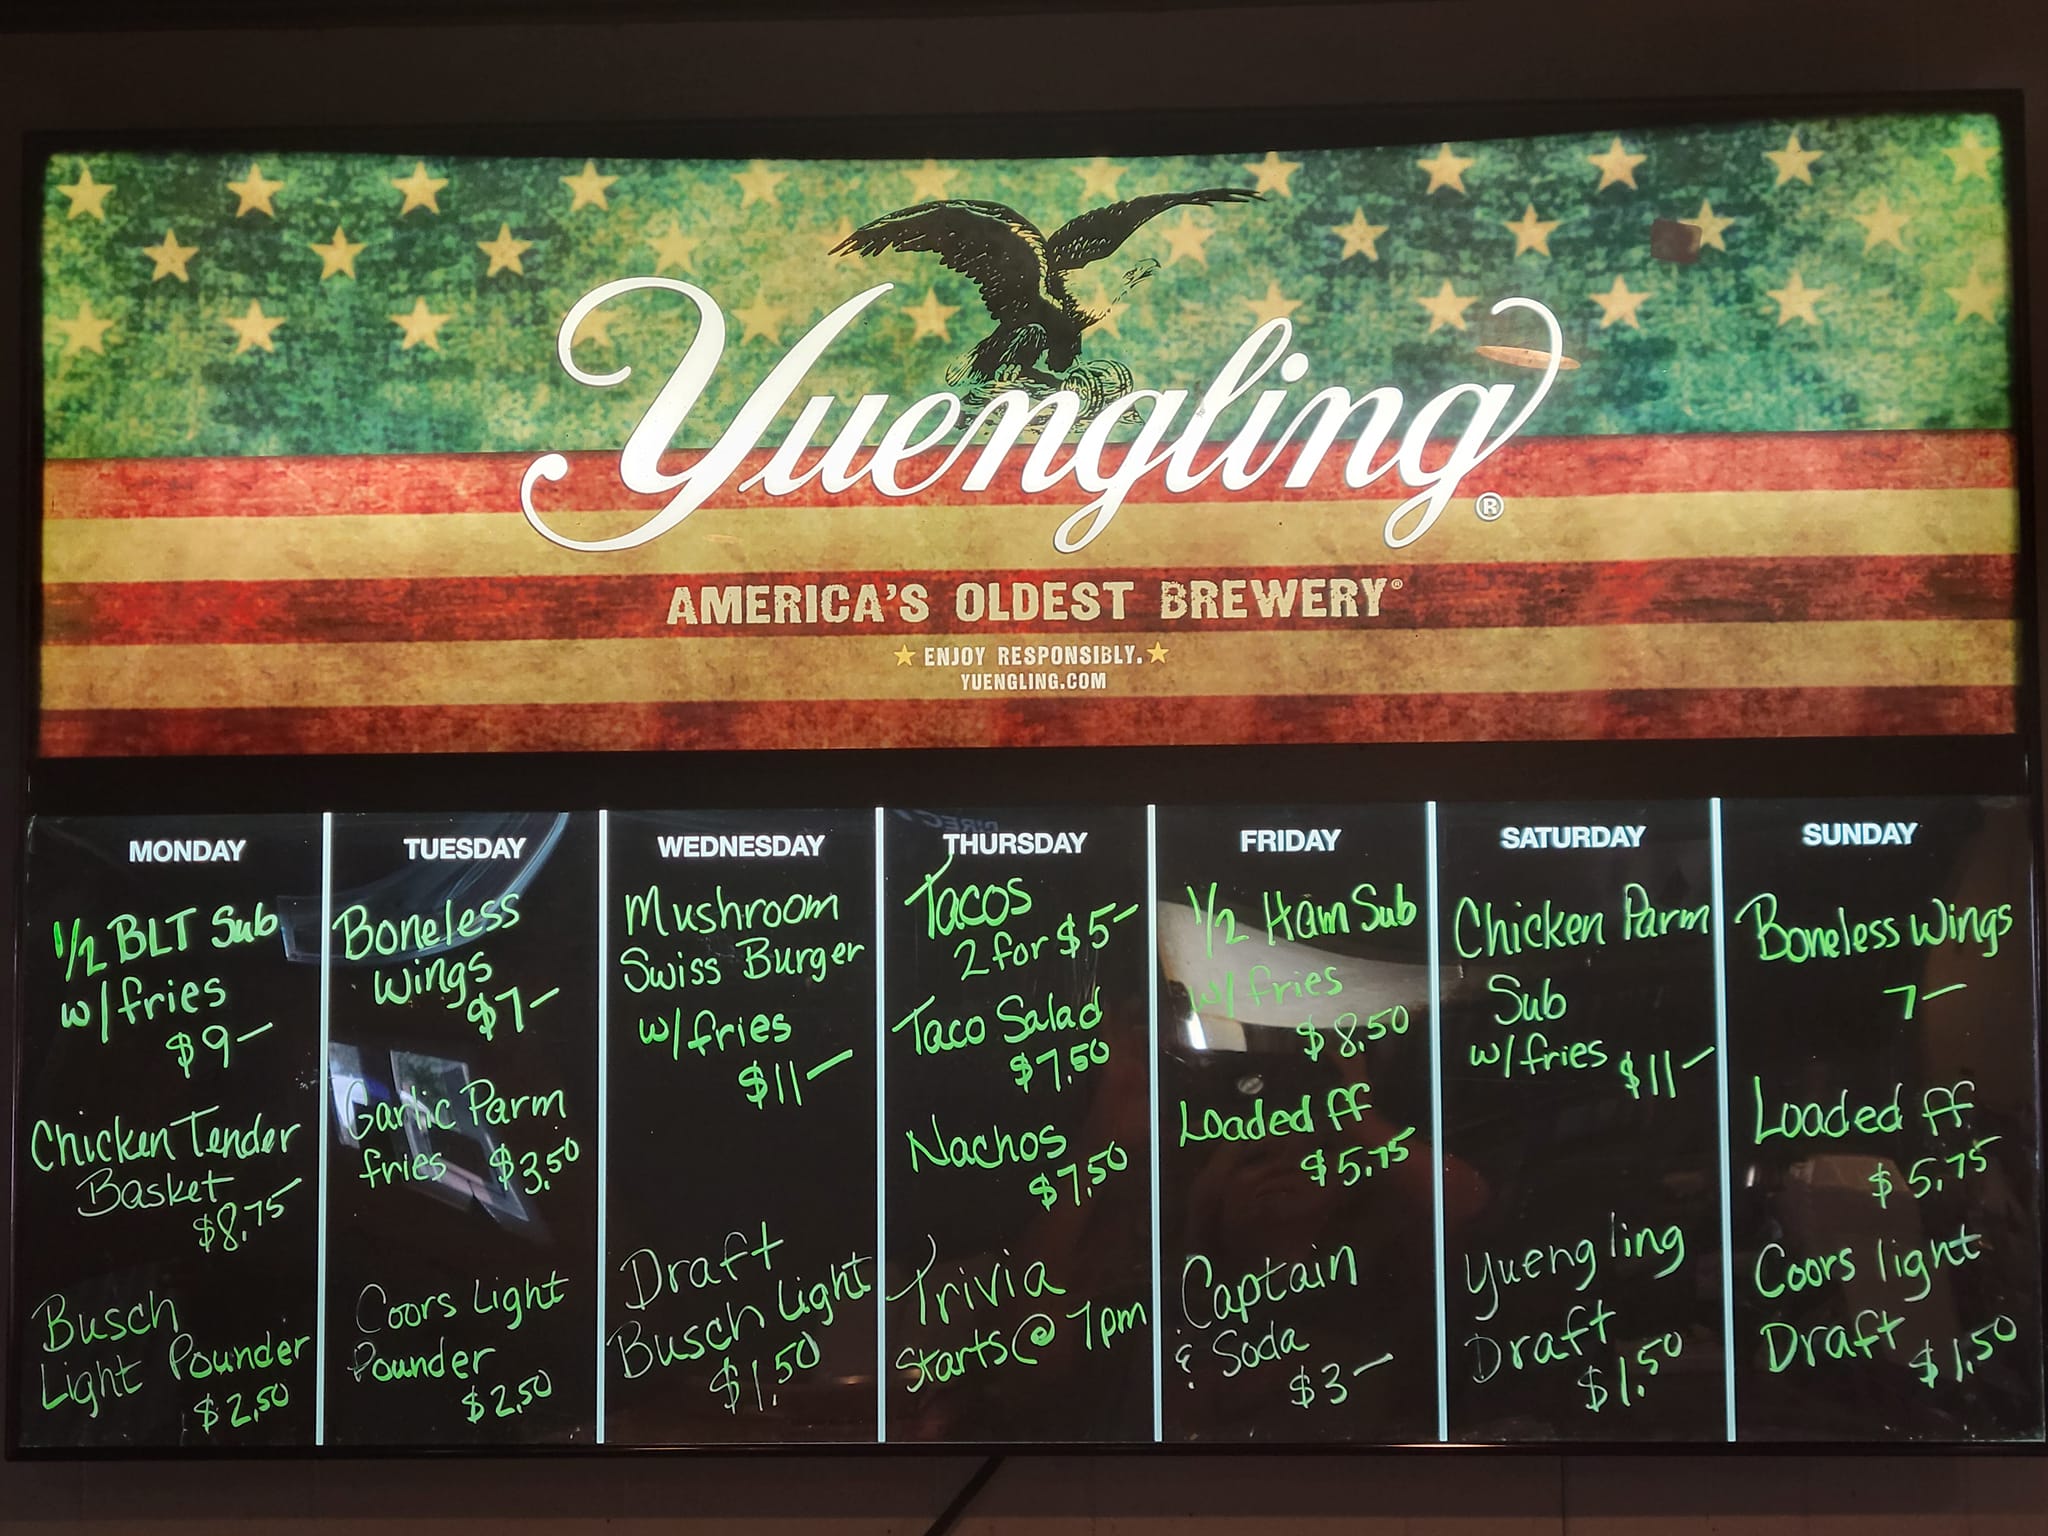 Yuengling®
AMERICA'S OLDEST BREWERY®
ENJOY RESPONSIBLY.
YUENGLING.COM
MONDAY
1/2 BLT Sub
w/fries
$9—
Chicken Tender
Basket
$8.75
Busch
Light Pounder
$2.50
TUESDAY
Boneless
Wings
$7—
Garlic Parm
fries $3.50
Coors Light
Pounder
$2.50
WEDNESDAY
Mushroom
Swiss Burger
w/fries
$11—
Draft
Busch Light
$1.50
THURSDAY
Tacos
2 for $5—
Taco Salad
$7.50
Nachos
$7.50
Trivia
Starts @ 7pm
FRIDAY
1/2 Ham Sub
w/fries
$8.50
Loaded ff
$5.75
Captain
& Soda
$3—
SATURDAY
Chicken Parm
Sub
w/fries $11—
Yuengling
Draft
$1.50
SUNDAY
Boneless Wings
7—
Loaded ff
$5.75
Coors light
Draft $1.50